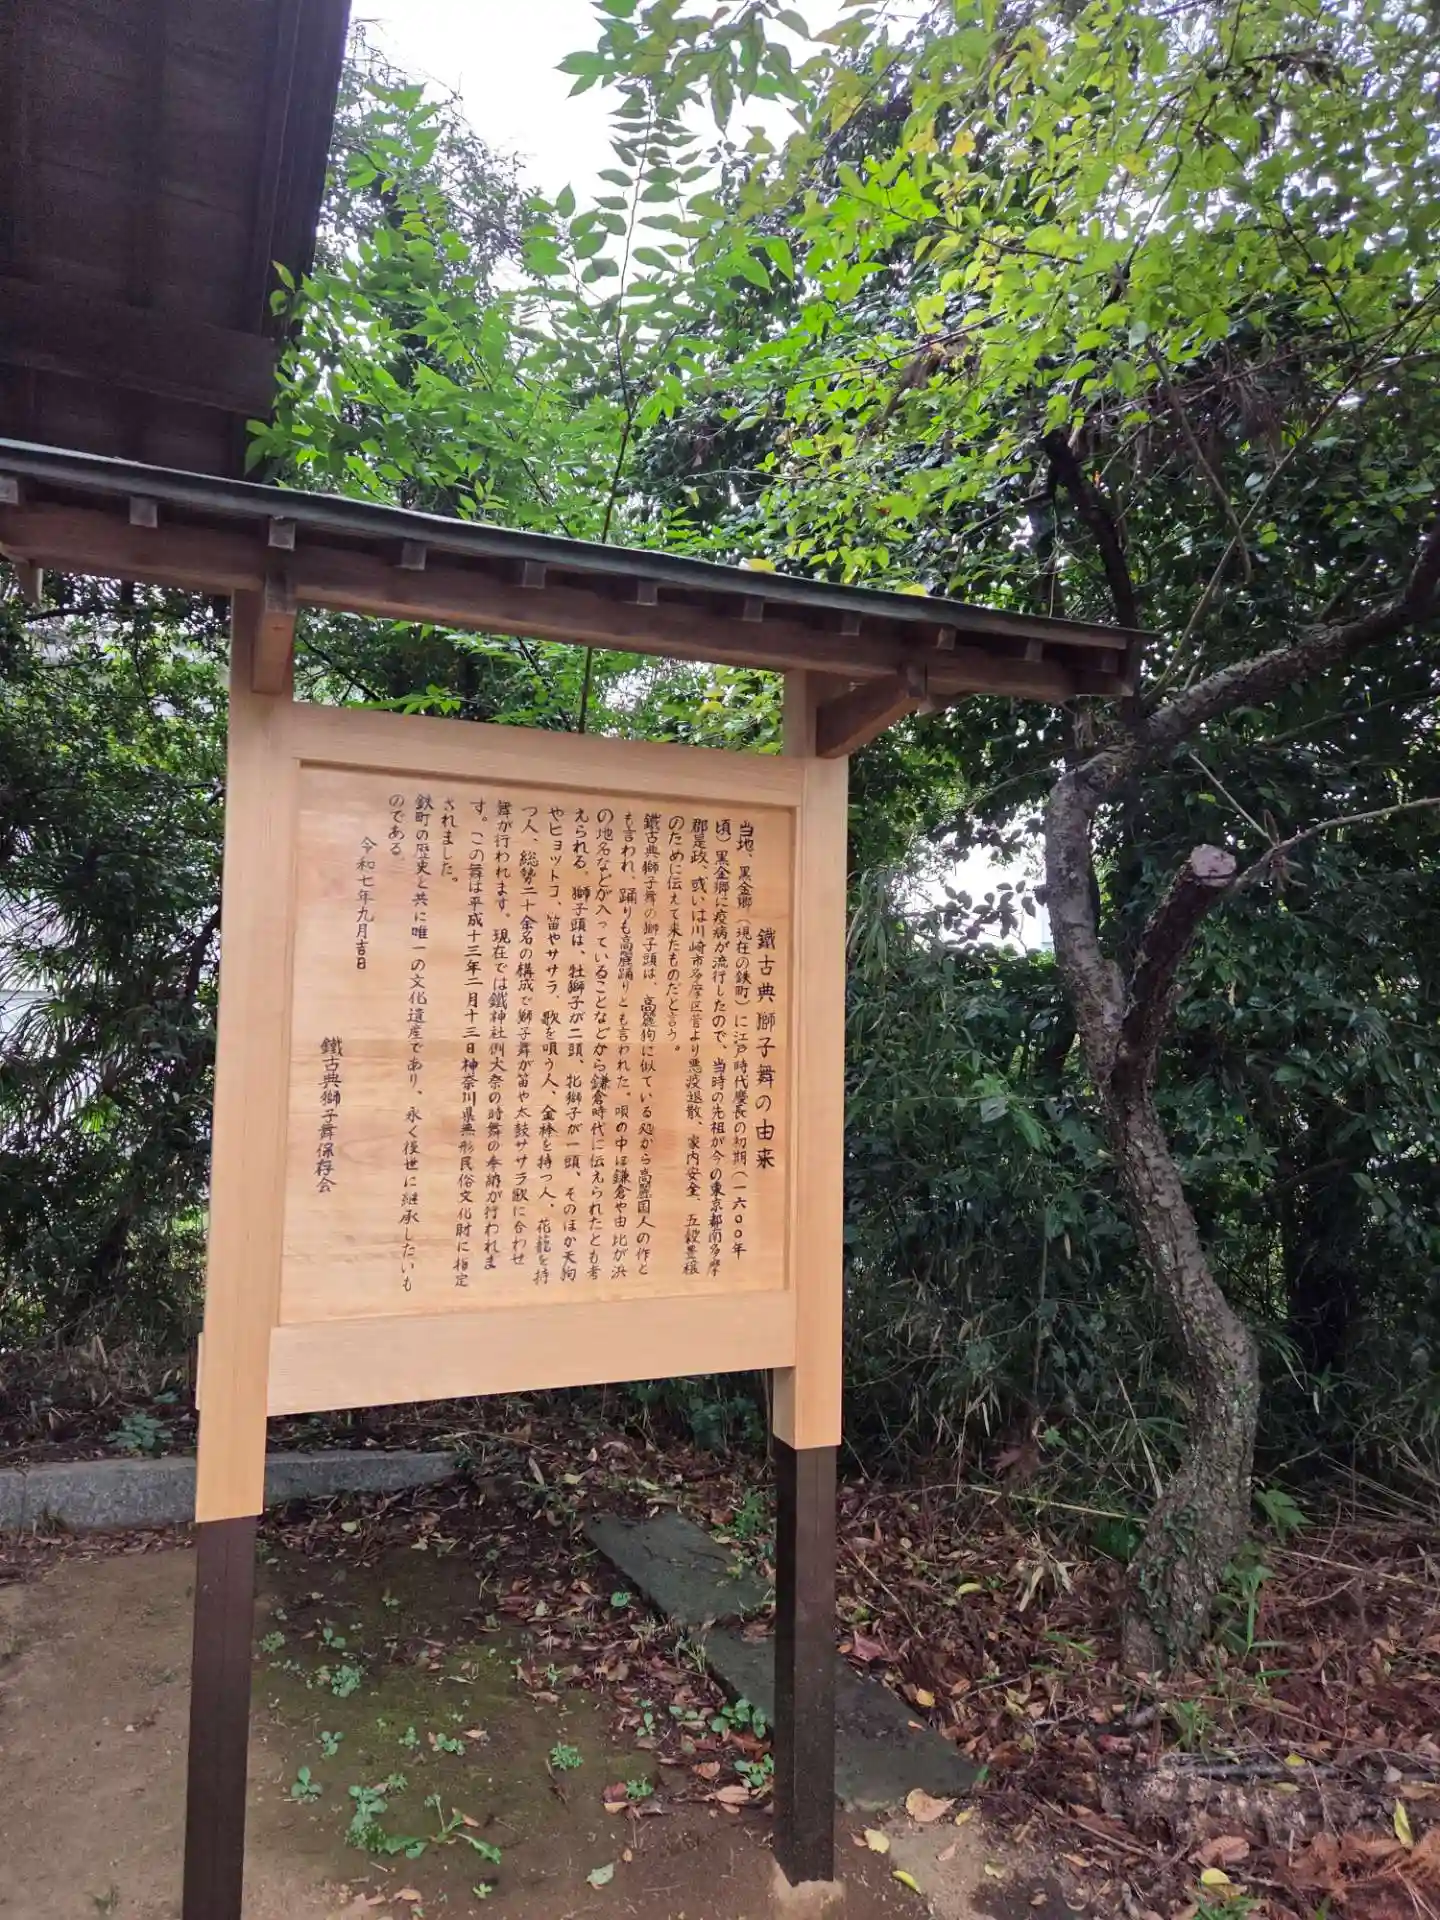 鐵古典獅子舞の由来
当地、黒金郷（現在の鉄町）に江戸時代慶長の初期（一六〇〇年
頃）黒金郷に疫病が流行したので、当時の先祖が今の東京都南多摩
郡是政、或いは川崎市多摩区菅より悪疫退散、家内安全、五穀豊穣
のために伝えて来たものだと言う。
鐵古典獅子舞の獅子頭は、高麗狗に似ている処から高麗国人の作と
も言われ、踊りも高麗踊りとも言われた。唄の中は鎌倉や由比が浜
の地名などが入っていることなどから鎌倉時代に伝えられたとも考
えられる。獅子頭は、牡獅子が二頭、牝獅子が一頭、そのほか天狗
やヒョットコ、笛やササラ、歌を唄う人、金棒を持つ人、花籠を持
つ人、総勢二十余名の構成で獅子舞が笛や太鼓ササラ歌に合わせ
舞が行われます。現在では鐵神社例大祭の時舞の奉納が行われま
す。この舞は平成十三年二月十三日神奈川県無形民俗文化財に指定
されました。
鉄町の歴史と共に唯一の文化遺産であり、永く後世に継承したいも
のである。
令和七年九月吉日
鐵古典獅子舞保存会